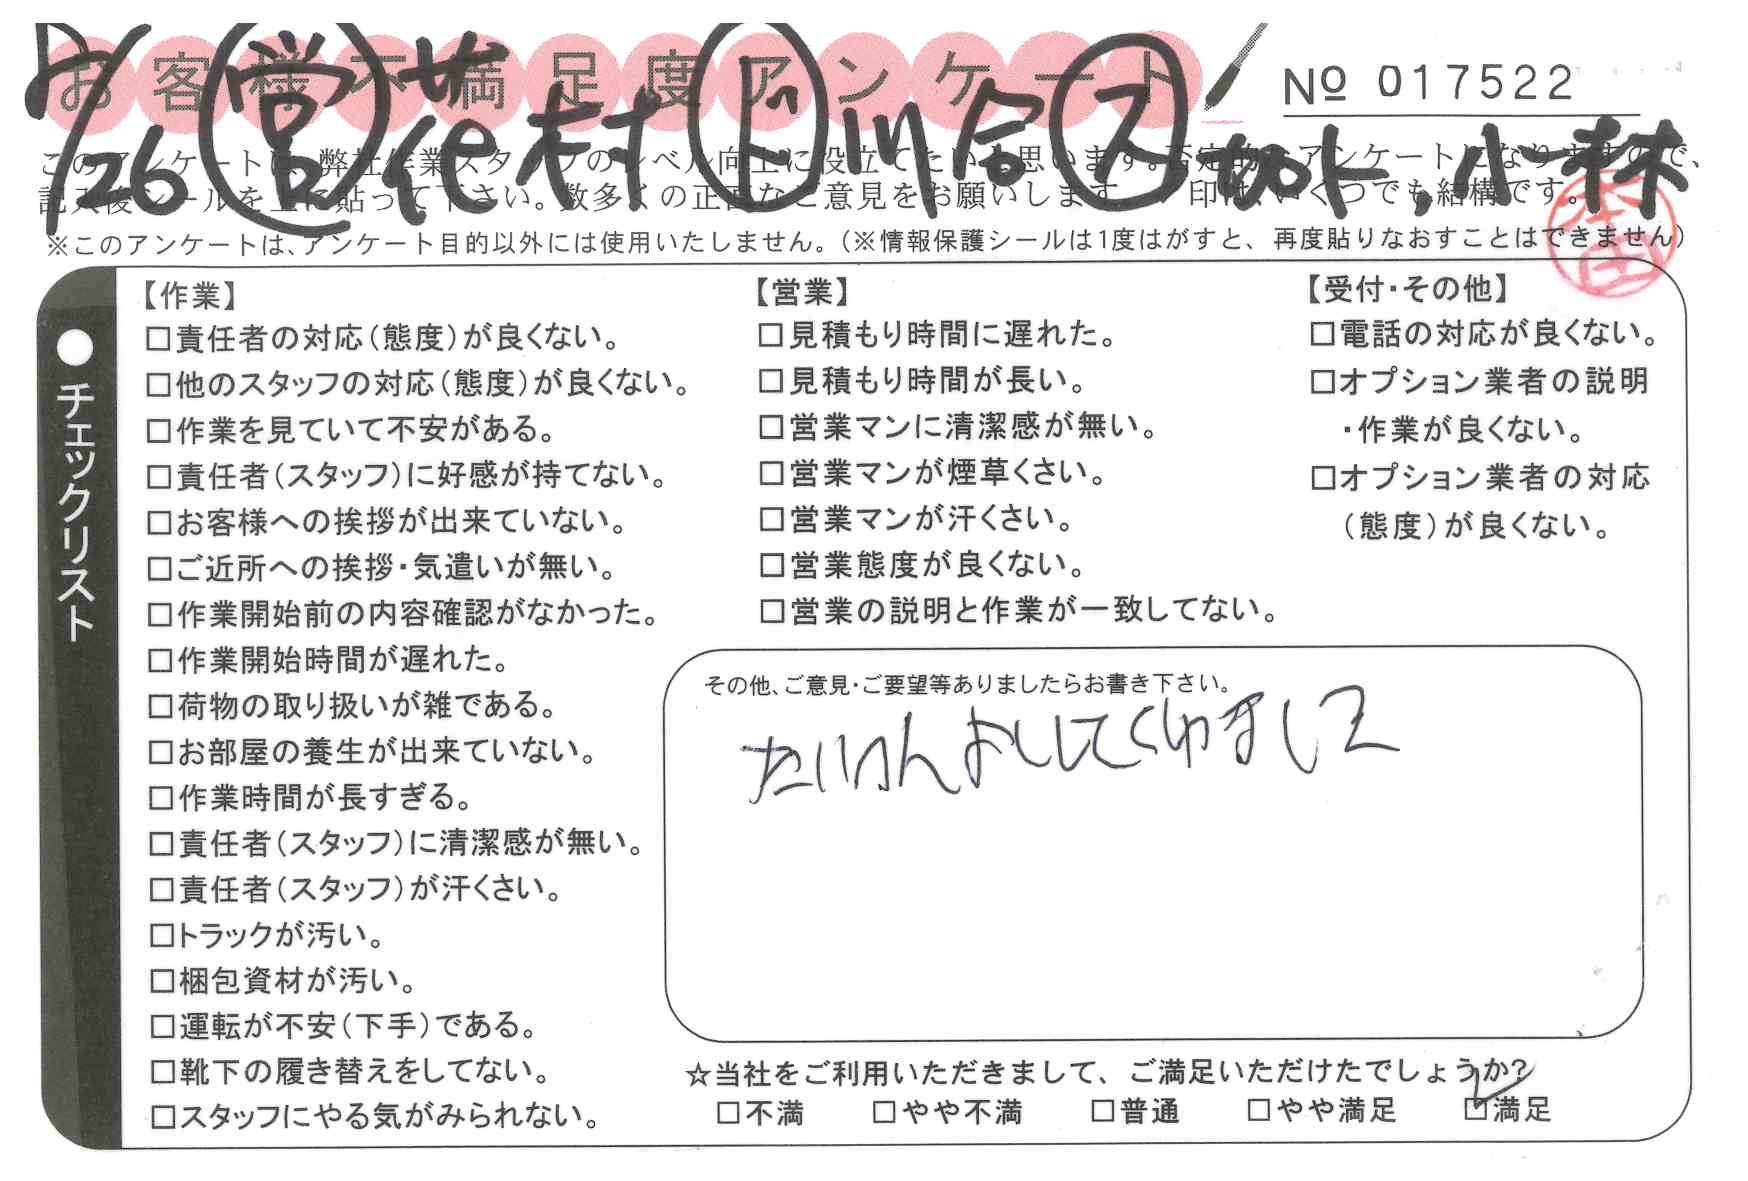 お客様不満足度アンケート
No 017522
/26 営 佐村 ド 川合 ス 加ト,小林
このアンケートは、弊社作業スタッフのレベル向上に役立てたいと思います。否定的なアンケートになりますので、
記入後シールを上に貼って下さい。数多くの正直なご意見をお願いします。✓印は、いくつでも結構です。
※このアンケートは、アンケート目的以外には使用いたしません。(※情報保護シールは1度はがすと、再度貼りなおすことはできません)
本田
●チェックリスト
【作業】
□責任者の対応(態度)が良くない。
□他のスタッフの対応(態度)が良くない。
□作業を見ていて不安がある。
□責任者(スタッフ)に好感が持てない。
□お客様への挨拶が出来ていない。
□ご近所への挨拶・気遣いが無い。
□作業開始前の内容確認がなかった。
□作業開始時間が遅れた。
□荷物の取り扱いが雑である。
□お部屋の養生が出来ていない。
□作業時間が長すぎる。
□責任者(スタッフ)に清潔感が無い。
□責任者(スタッフ)が汗くさい。
□トラックが汚い。
□梱包資材が汚い。
□運転が不安(下手)である。
□靴下の履き替えをしてない。
□スタッフにやる気がみられない。
【営業】
□見積もり時間に遅れた。
□見積もり時間が長い。
□営業マンに清潔感が無い。
□営業マンが煙草くさい。
□営業マンが汗くさい。
□営業態度が良くない。
□営業の説明と作業が一致してない。
【受付・その他】
□電話の対応が良くない。
□オプション業者の説明
・作業が良くない。
□オプション業者の対応
(態度)が良くない。
その他、ご意見・ご要望等ありましたらお書き下さい。
してくれました
☆当社をご利用いただきまして、ご満足いただけたでしょうか?
□不満 □やや不満 □普通 □やや満足 ☑満足